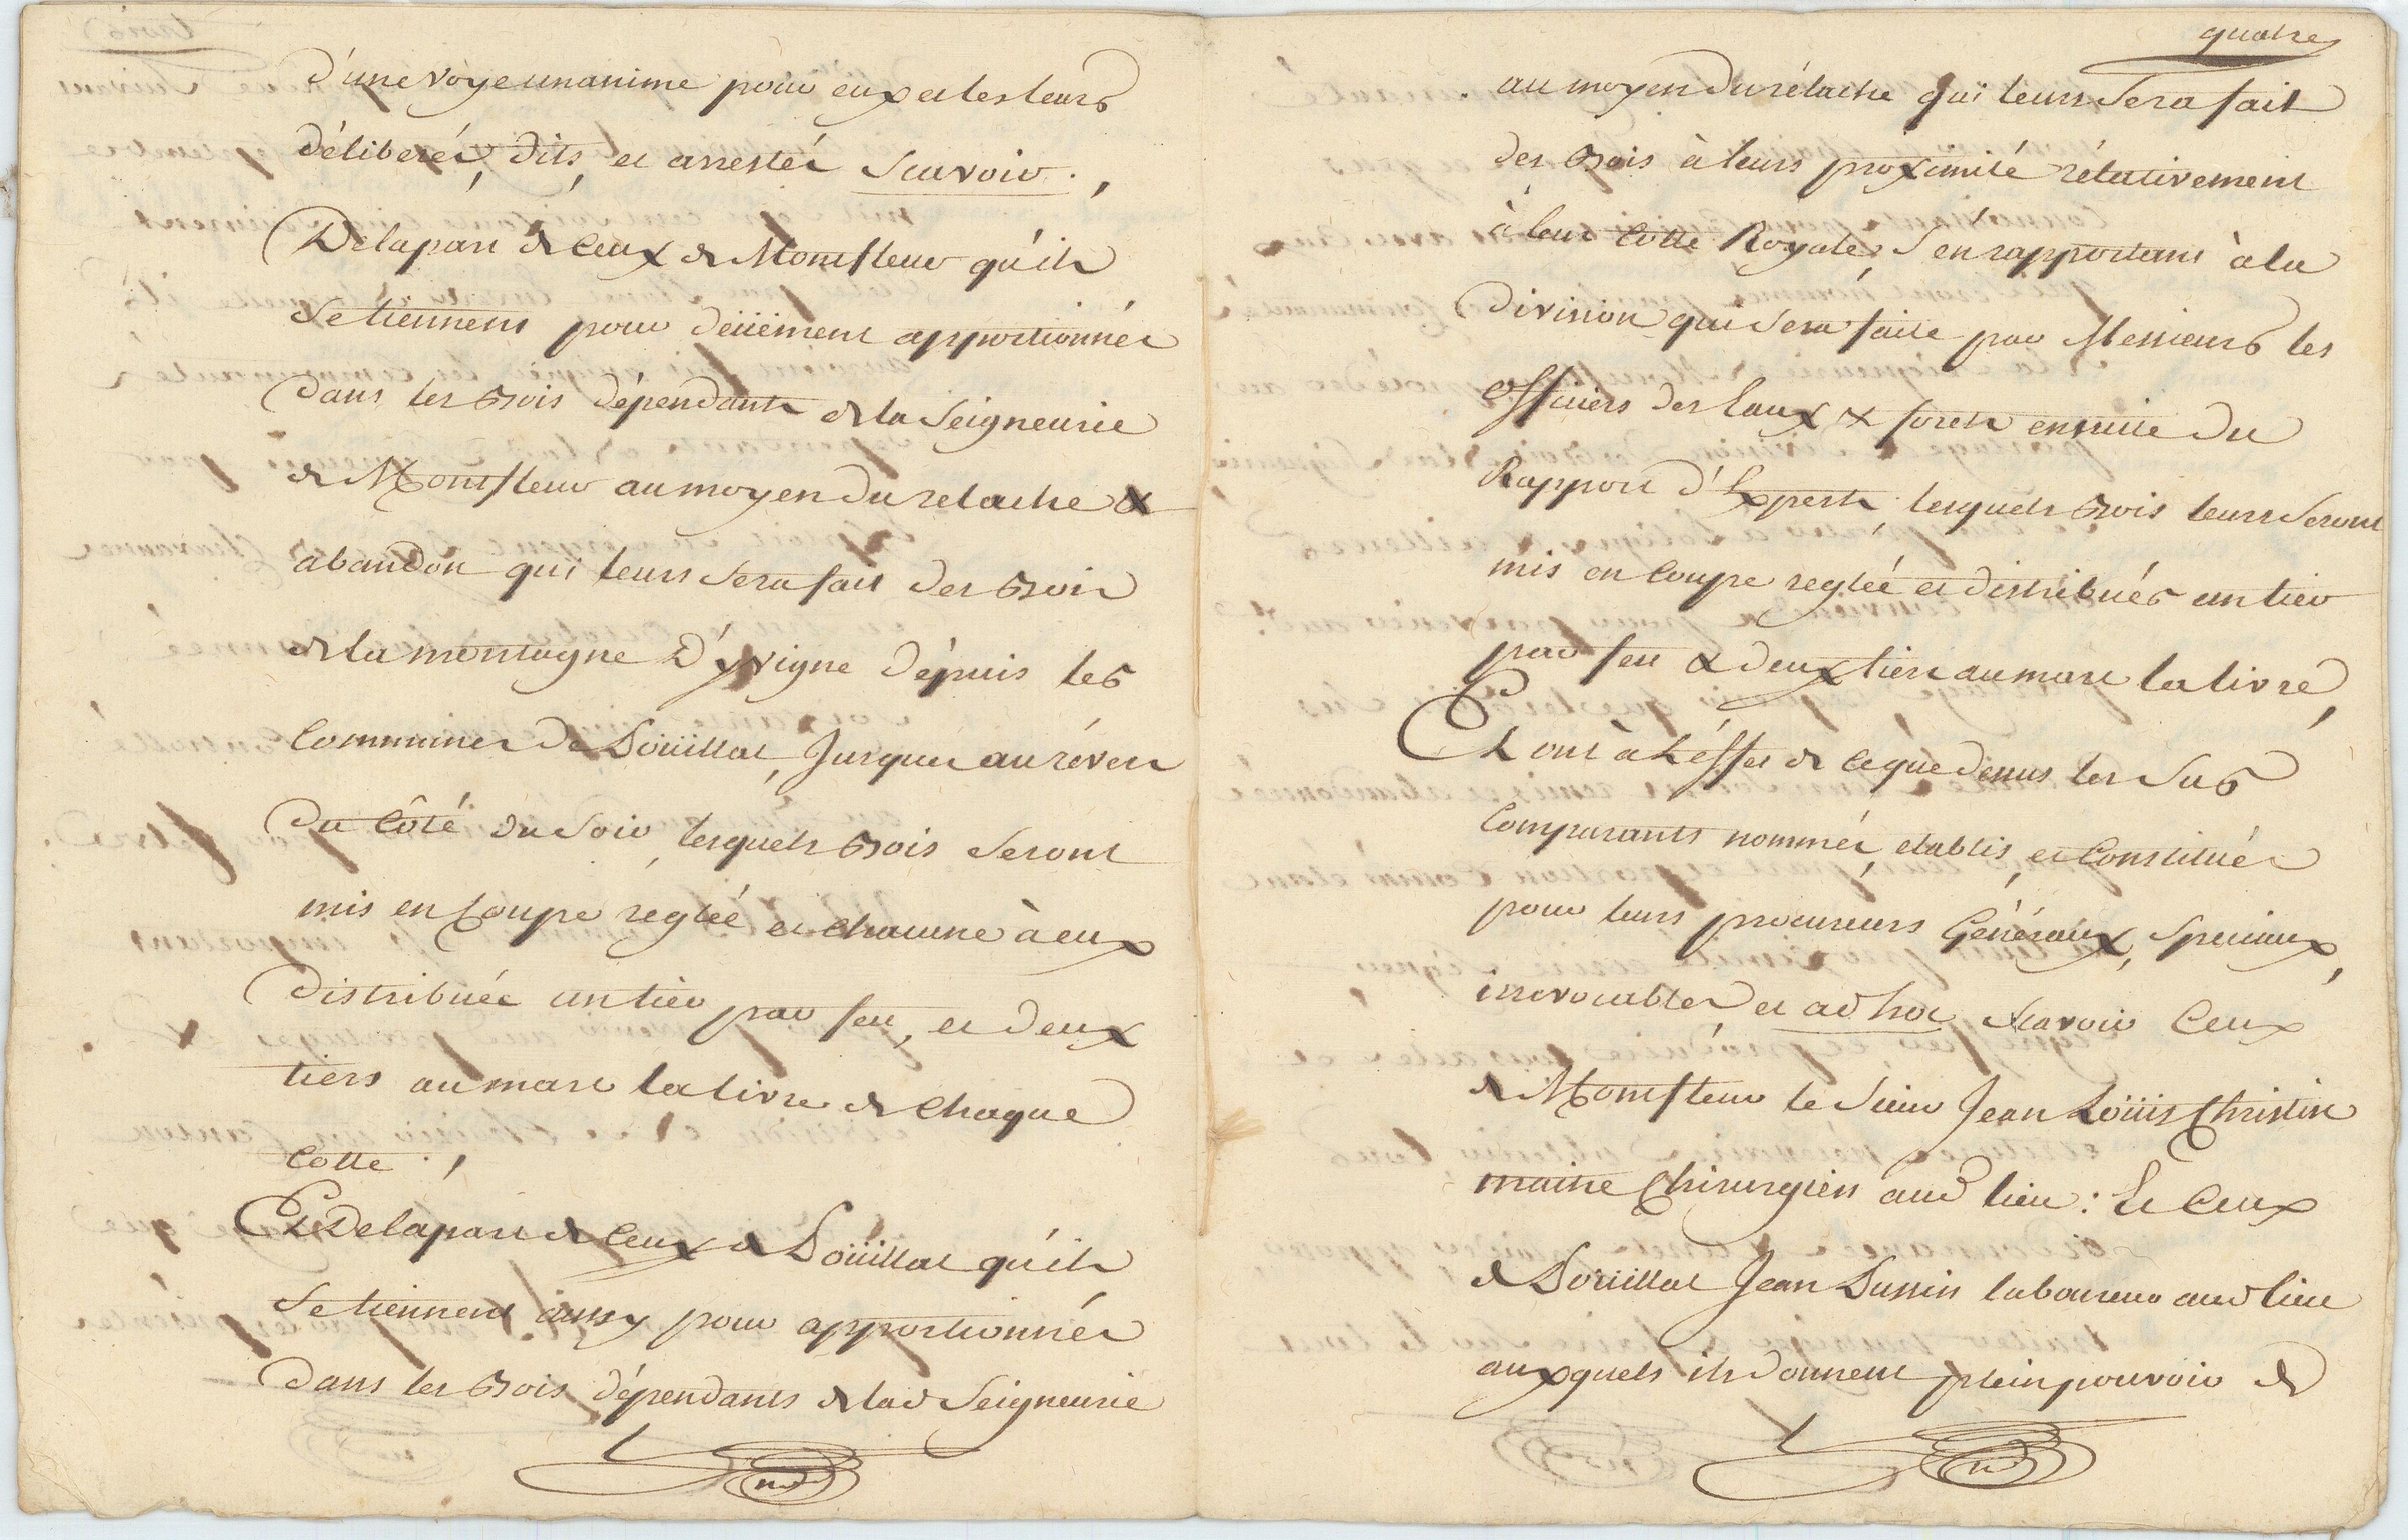 d'une voye unanime pour eux et les leurs
déliberés, dits, et arrestés Scavoir.,
De la part de Ceux de Montfleur qu'ils
se tiennent pour deüement apportionnés
dans les Bois dépendants de la Seigneurie
de Montfleur au moyen du relache &
abandon qui leurs sera fait des Bois
de la montagne D'yvigne dépuis les
Communes de Doüillat, Jusques au révers
du Côté du Soir, lesquels Bois seront
mis en Coupe reglée et chacune à eux
distribuée un tier par feu, et deux
tiers au marc la livre de Chaque
Cotte.,
Et De la part de Ceux de Doüillat qu'ils
se tiennent aussy pour apportionnés
dans les Bois dépendants de lad Seigneurie
quatre
au moyen du rélache qui leurs Sera fait
des Bois à leurs proximité rélativement
à leur Cotte Royale, S'en rapportans à la
Division qui sera faite par Messieurs les
Officiers des Eaux & forets ensuite du
Rapport d'Experts, lesquels Bois leurs Seront
mis en Coupe reglée et distribués un tier
par feu & deux tiers au marc la livre,
Et ont à L'éffet de ce que dessus les Sus
Comparants nommés, etablis, et Constitués
pour leurs procureurs Généraux, Speciaux,
irrevocables et ad hoc Scavoir Ceux
de Montfleur le Sieur Jean Loüis Christin
maitre Chirurgien aud lieu: Et Ceux
de Doüillat Jean Dussin laboureur aud lieu
auxquels ils donnent plein pouvoir de